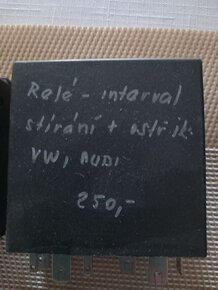 Relé - interval
stírání + ostřik
VW, AUDI
250,-